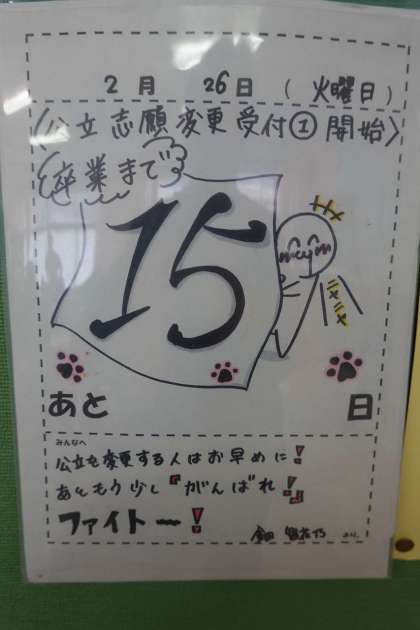 2月 26日 (火曜日)
〈公立志願変更受付① 開始〉
卒業まで
15
ニメニメ
あと 日
みんなへ
公立を変更する人はお早めに!
あともう少し『がんばれ!』
ファイトー!
より。